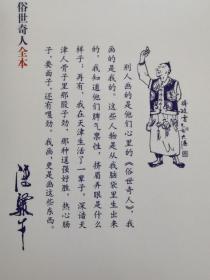 俗世奇人全本
别人画的是他们心里的《俗世奇人》，我
画的是我的。这些人物是从我脑袋里生出来
的，我知道他们脾气禀性，挤眉弄眼是什么
样子；再有，我在天津生活了一辈子，深谙天
津人骨子里那股子劲，那种逞强好胜，热心肠
子，要面子，还有嘎劲。我画，更是画这些东西。
冯骥才